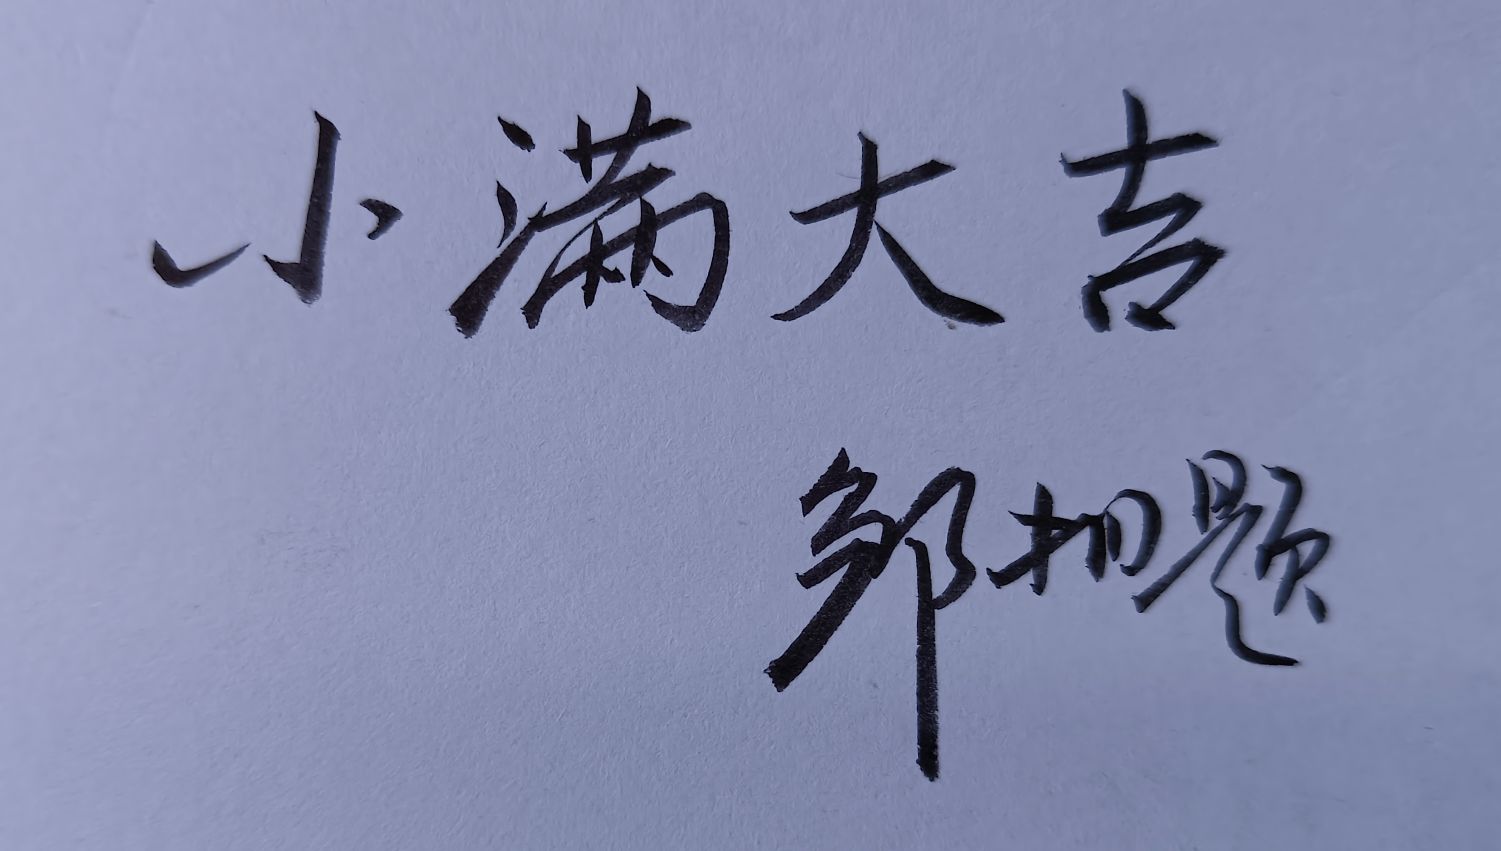 小满大吉
邹 题